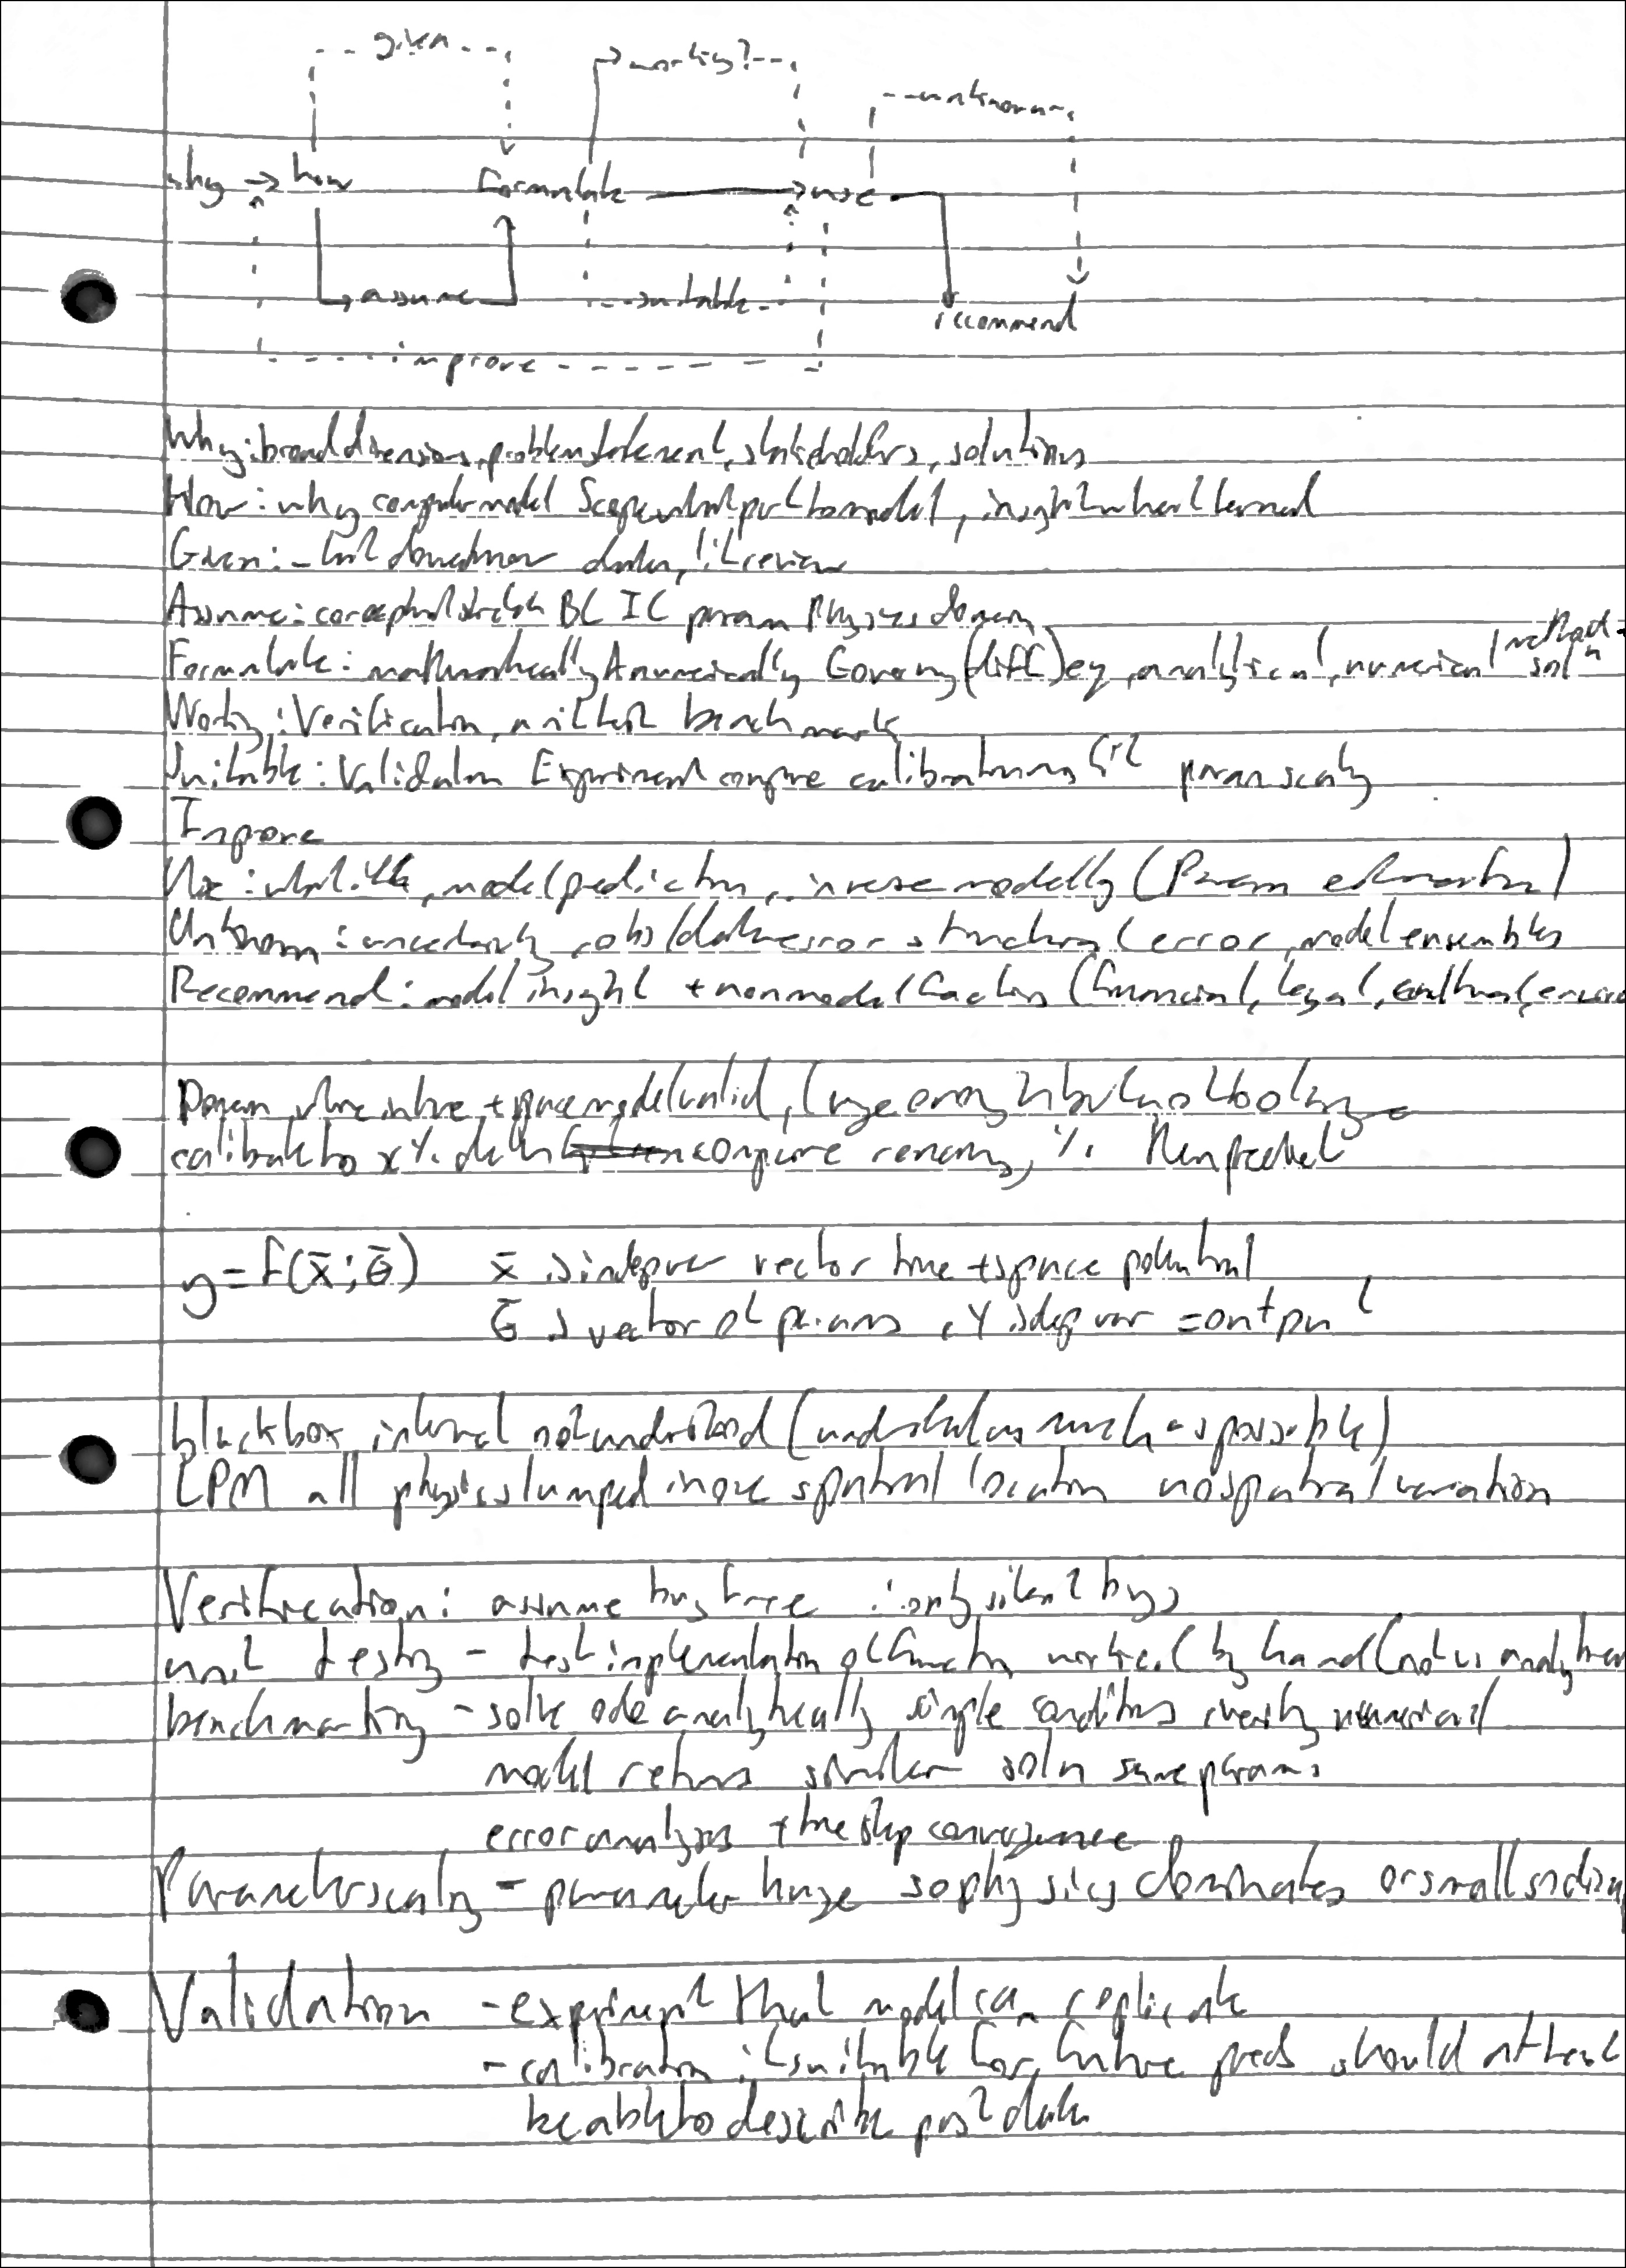 given
working?
unknown
why → how
Formulate
use
assume
suitable
recommend
improve
Why: broad dimensions, problem statement, stakeholders, solutions
How: why computer model Scope what part to model, insight when learned
Given: data, lit review
Assume: conceptual sketch BC IC param Physics domain
Formulate: mathematically & numerically Governing (diff) eq, analytical, numerical method soln
Working: Verification, unit test benchmark
Suitable: Validation Experiment compare calibration fit param scaling
Improve
Use: what if, model prediction, inverse modelling (Param estimation)
Unknown: uncertainty, obs/data error structural error, model ensembles
Recommend: model insight + nonmodel factors (financial, legal, cultural,
Domain where in time + space model valid, large enough but not too large
calibrate to x% data compare remaining % then predict
y = f(x̄; θ̄) x̄ is indep var vector time + space potential
θ̄ is vector of params, y is dep var = output
blackbox internal not understood (understand as much as possible)
LPM all physics lumped in one spatial location no spatial variation
Verification: assume bug free ∴ only silent bugs
unit testing - test implementation of function worked by hand (not vs analytical
benchmarking - solve ode analytically simple conditions verify numerical
model returns similar soln same params
error analysis + time step convergence
Parameter scaling - parameter huge so physics dominates or small
Validation - experiment that model can replicate
- calibration if suitable for future preds should at least
be able to describe past data